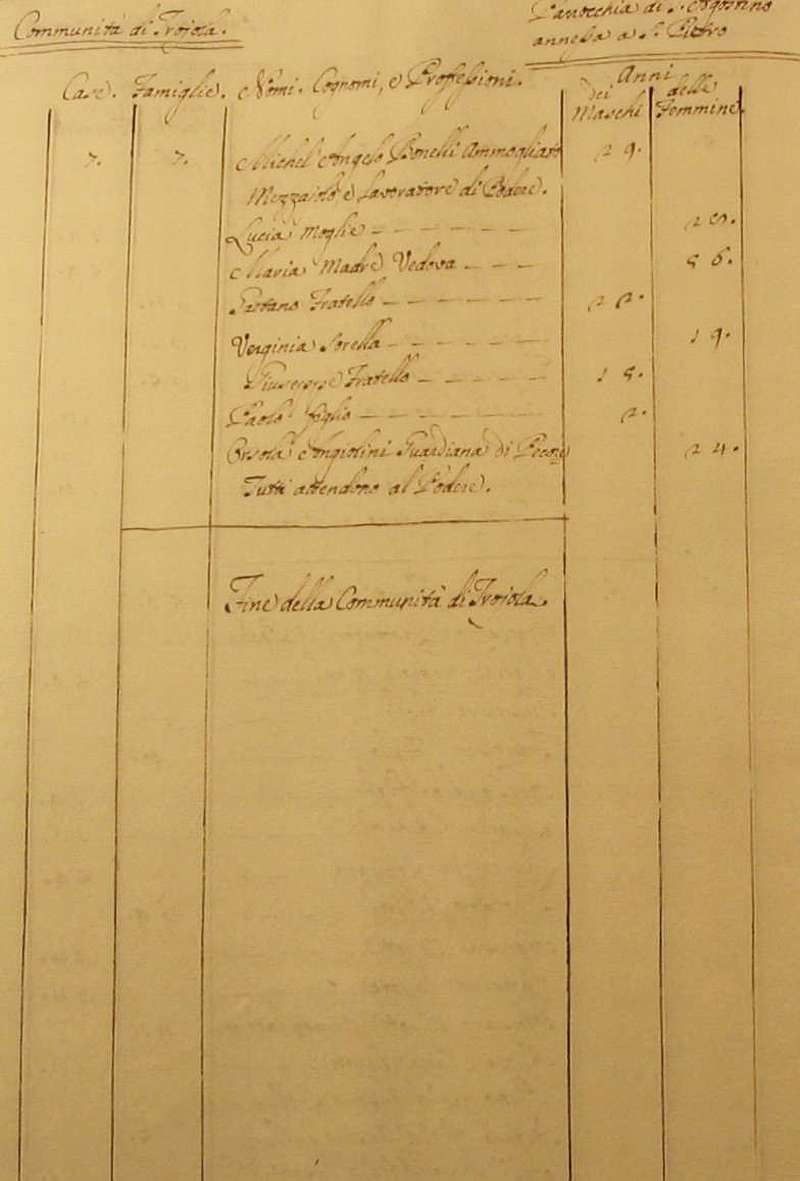 Communità di Troiola.
Parochia di S.
annessa a S. Pietro
Case. Famiglie. Nomi. Cognomi, e Professioni.
Anni
dei Maschi
delle Femmine.
7. 7. Michel' Angelo Bonelli Ammogliato 29.
Mezzadro e Lavoratore di Podere.
Lucia Moglie
Maria Madre Vedova 56.
Fratello 22.
Verginia Sorella 19.
Fratello 15.
Paolo figlio 2.
Orsola Angiolini Guardiana di 24.
Tutti attendono al Podere.
Fine della Communità di Troiola.